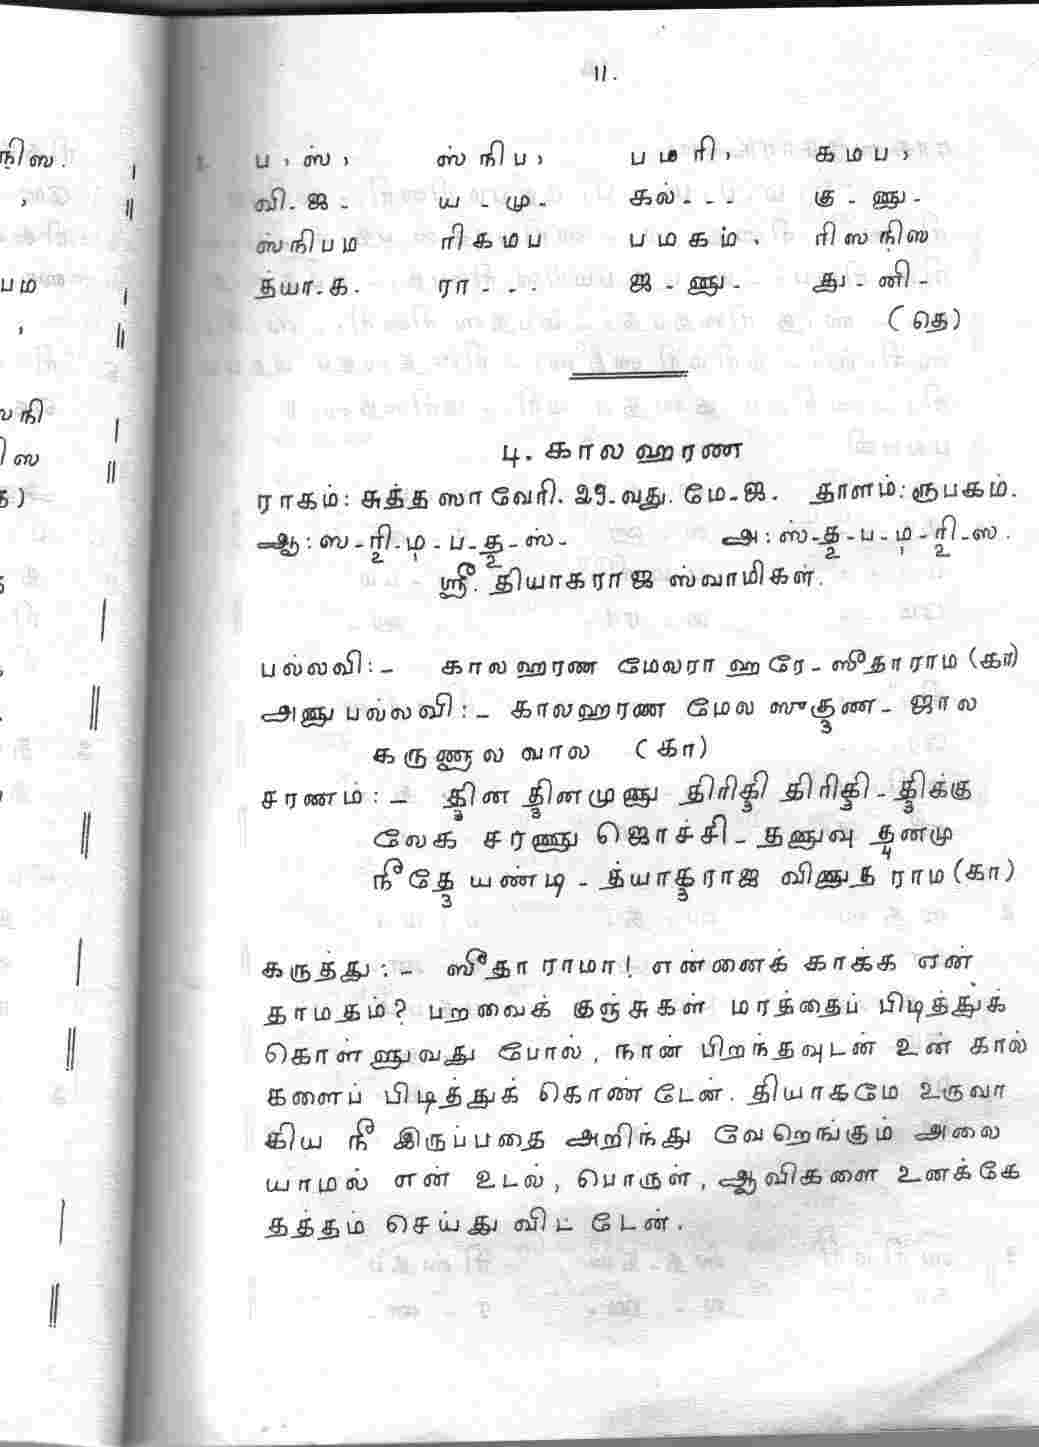 11.
ப , ஸ் , ஸ் நி ப , ப ம ரி , க ம ப ,
வி - ஜ - ய - மு - கல் - - - கு - ணு -
ஸ் நி ப ம ரி க ம ப ப ம க ம் . ரி ஸ நி ஸ
த்யா - க . ரா - - . ஜ - ணு - து - னி -
( தெ )
நிஸ .
,
பம
,
நி
ஸ
)
டி . கால ஹரண
ராகம் : சுத்த ஸாவேரி . 29 . வது . மே - ஜ . தாளம் : ரூபகம் .
ஆ : ஸ - ரி2 - ம1 - ப - த2 - ஸ் - அ : ஸ் - த2 - ப - ம1 - ரி2 - ஸ .
ஸ்ரீ . தியாகராஜ ஸ்வாமிகள் .
பல்லவி : – கால ஹரண மேலரா ஹரே – ஸீதா ராம ( கா )
அனுபல்லவி : – காலஹரண மேல ஸுகு3ண – ஜால
கருணால வால ( கா )
சரணம் : – தி3ன தி3னமுனு திரிகி3 திரிகி3 – தி3க்கு
லேக சரணு ஜொச்சி – தனுவு த4னமு
நீதே3 யண்டி – த்யாக3ராஜ வினுத ராம ( கா )
கருத்து : – ஸீதா ராமா ! என்னைக் காக்க ஏன்
தாமதம் ? பறவைக் குஞ்சுகள் மரத்தைப் பிடித்துக்
கொள்ளுவது போல் , நான் பிறந்தவுடன் உன் கால்
களைப் பிடித்துக் கொண்டேன் . தியாகமே உருவா
கிய நீ இருப்பதை அறிந்து வேறெங்கும் அலை
யாமல் என் உடல் , பொருள் , ஆவிகளை உனக்கே
தத்தம் செய்து விட்டேன் .